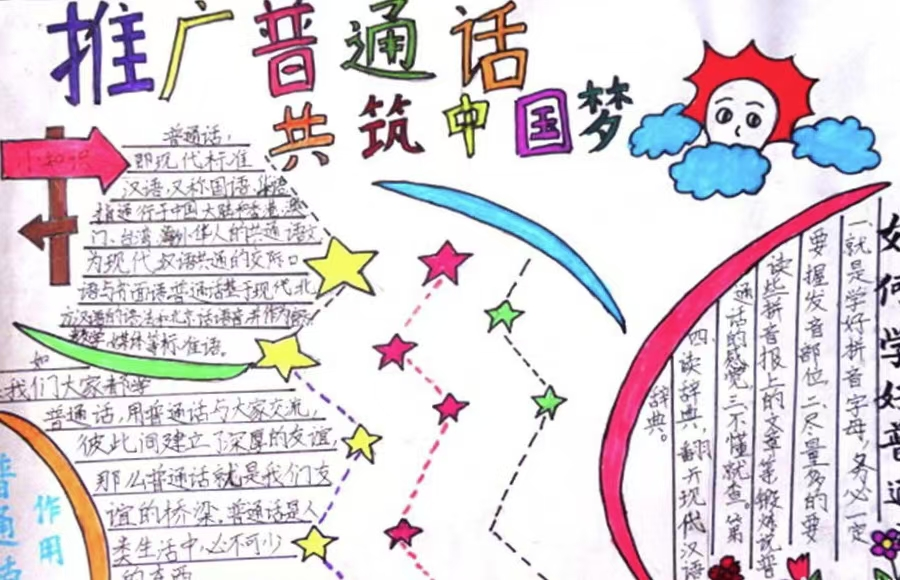 推广普通话
共筑中国梦
小知识
普通话,
即现代标准
汉语,又称国语、
指通行于中国大陆和香港、澳
门、台湾、海外华人的共通语文
为现代汉语共通的交际口
语与书面语。普通话基于现代北
方汉语的语法和北京话语音并作为
教学、媒体等标准语。
如
我们大家都学
普通话,用普通话与大家交流,
彼此间建立了深厚的友谊,
那么普通话就是我们友
谊的桥梁。普通话是人
类生活中必不可少
的东西
普通话
作用
如何学好普通
一、就是学好拼音字母,务必一定
要握发音部位。二、尽量多的要
读些拼音报上的文章等锻炼说普
通话的感觉。三、不懂就查。第
四、读辞典,翻开现代汉语
辞典。